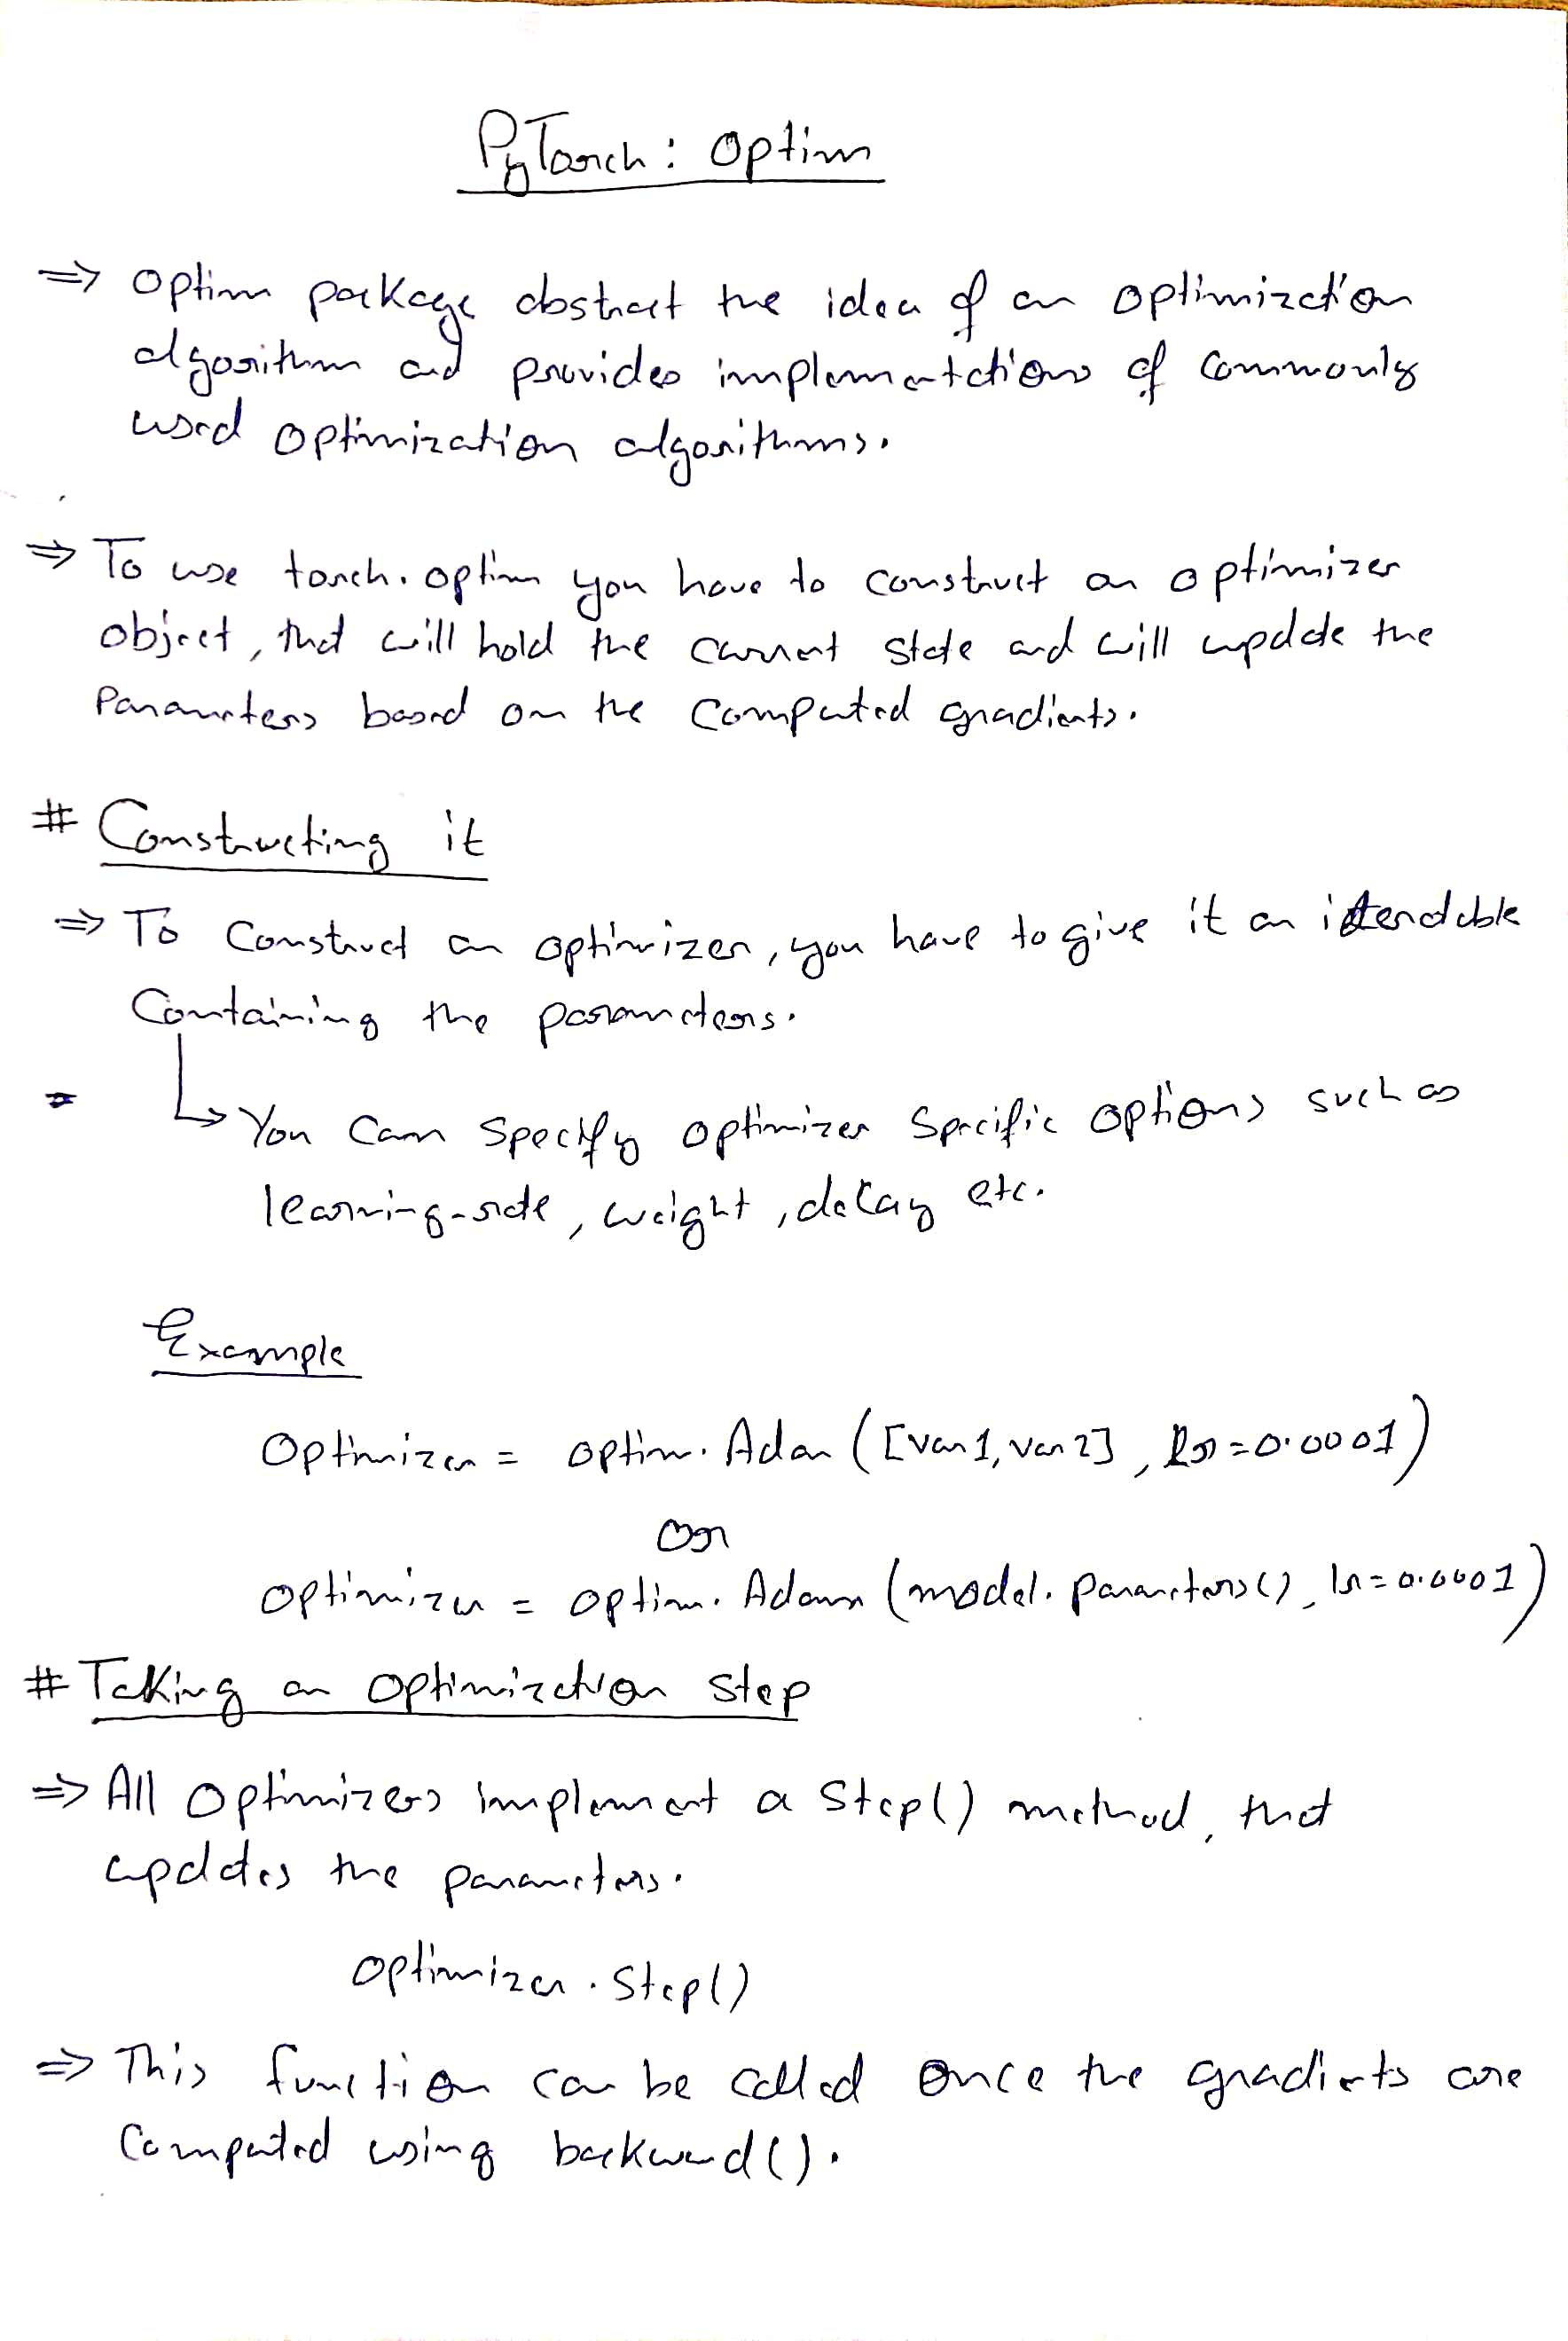 PyTorch : Optim
⇒ Optim package abstract the idea of an optimization
algorithm and provides implementations of commonly
used optimization algorithms.
⇒ To use torch.optim you have to construct an optimizer
object, that will hold the current state and will update the
Parameters based on the computed gradients.
# Constructing it
⇒ To Construct an optimizer, you have to give it an iterable
Containing the parameters.
↳ You can specify optimizer specific options such as
learning-rate, weight, decay etc.
Example
Optimizer = optim.Adam([var1, var2], lr=0.0001)
or
optimizer = optim.Adam(model.parameters(), lr=0.0001)
# Taking an optimization step
⇒ All Optimizers implement a step() method, that
updates the parameters.
optimizer.step()
⇒ This function can be called once the gradients are
Computed using backward().